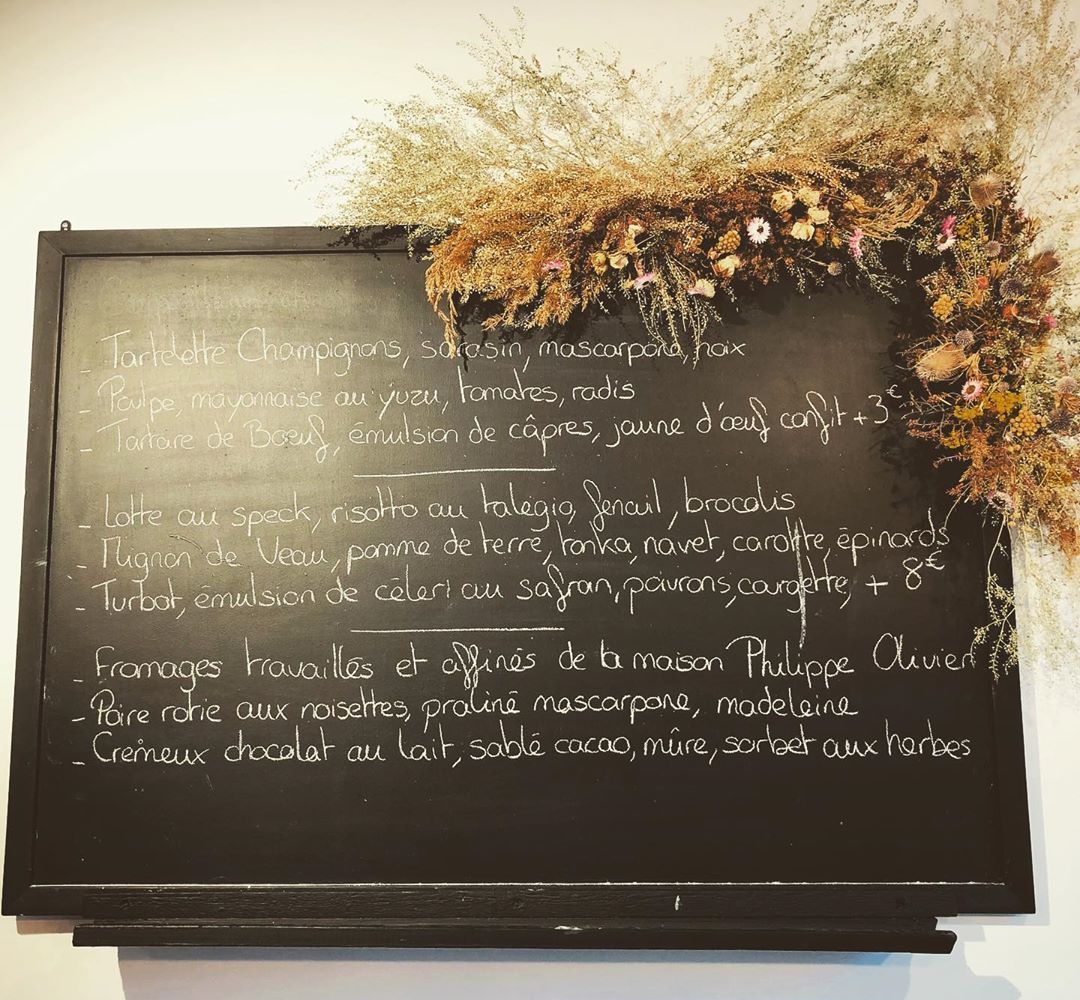 - Tartelette Champignons, sarasin, mascarpone, noix
- Poulpe, mayonnaise au yuzu, tomates, radis
- Tartare de Bœuf, émulsion de câpres, jaune d'œuf confit + 3€
- Lotte au speck, risotto au talégio, fenouil, brocolis
- Mignon de Veau, pomme de terre, tonka, navet, carotte, épinards
- Turbot, émulsion de céleri au safran, poivrons, courgette, + 8€
- Fromages travaillés et affinés de la maison Philippe Olivier
- Poire rotie aux noisettes, praliné mascarpone, madeleine
- Crémeux chocolat au lait, sablé cacao, mûre, sorbet aux herbes